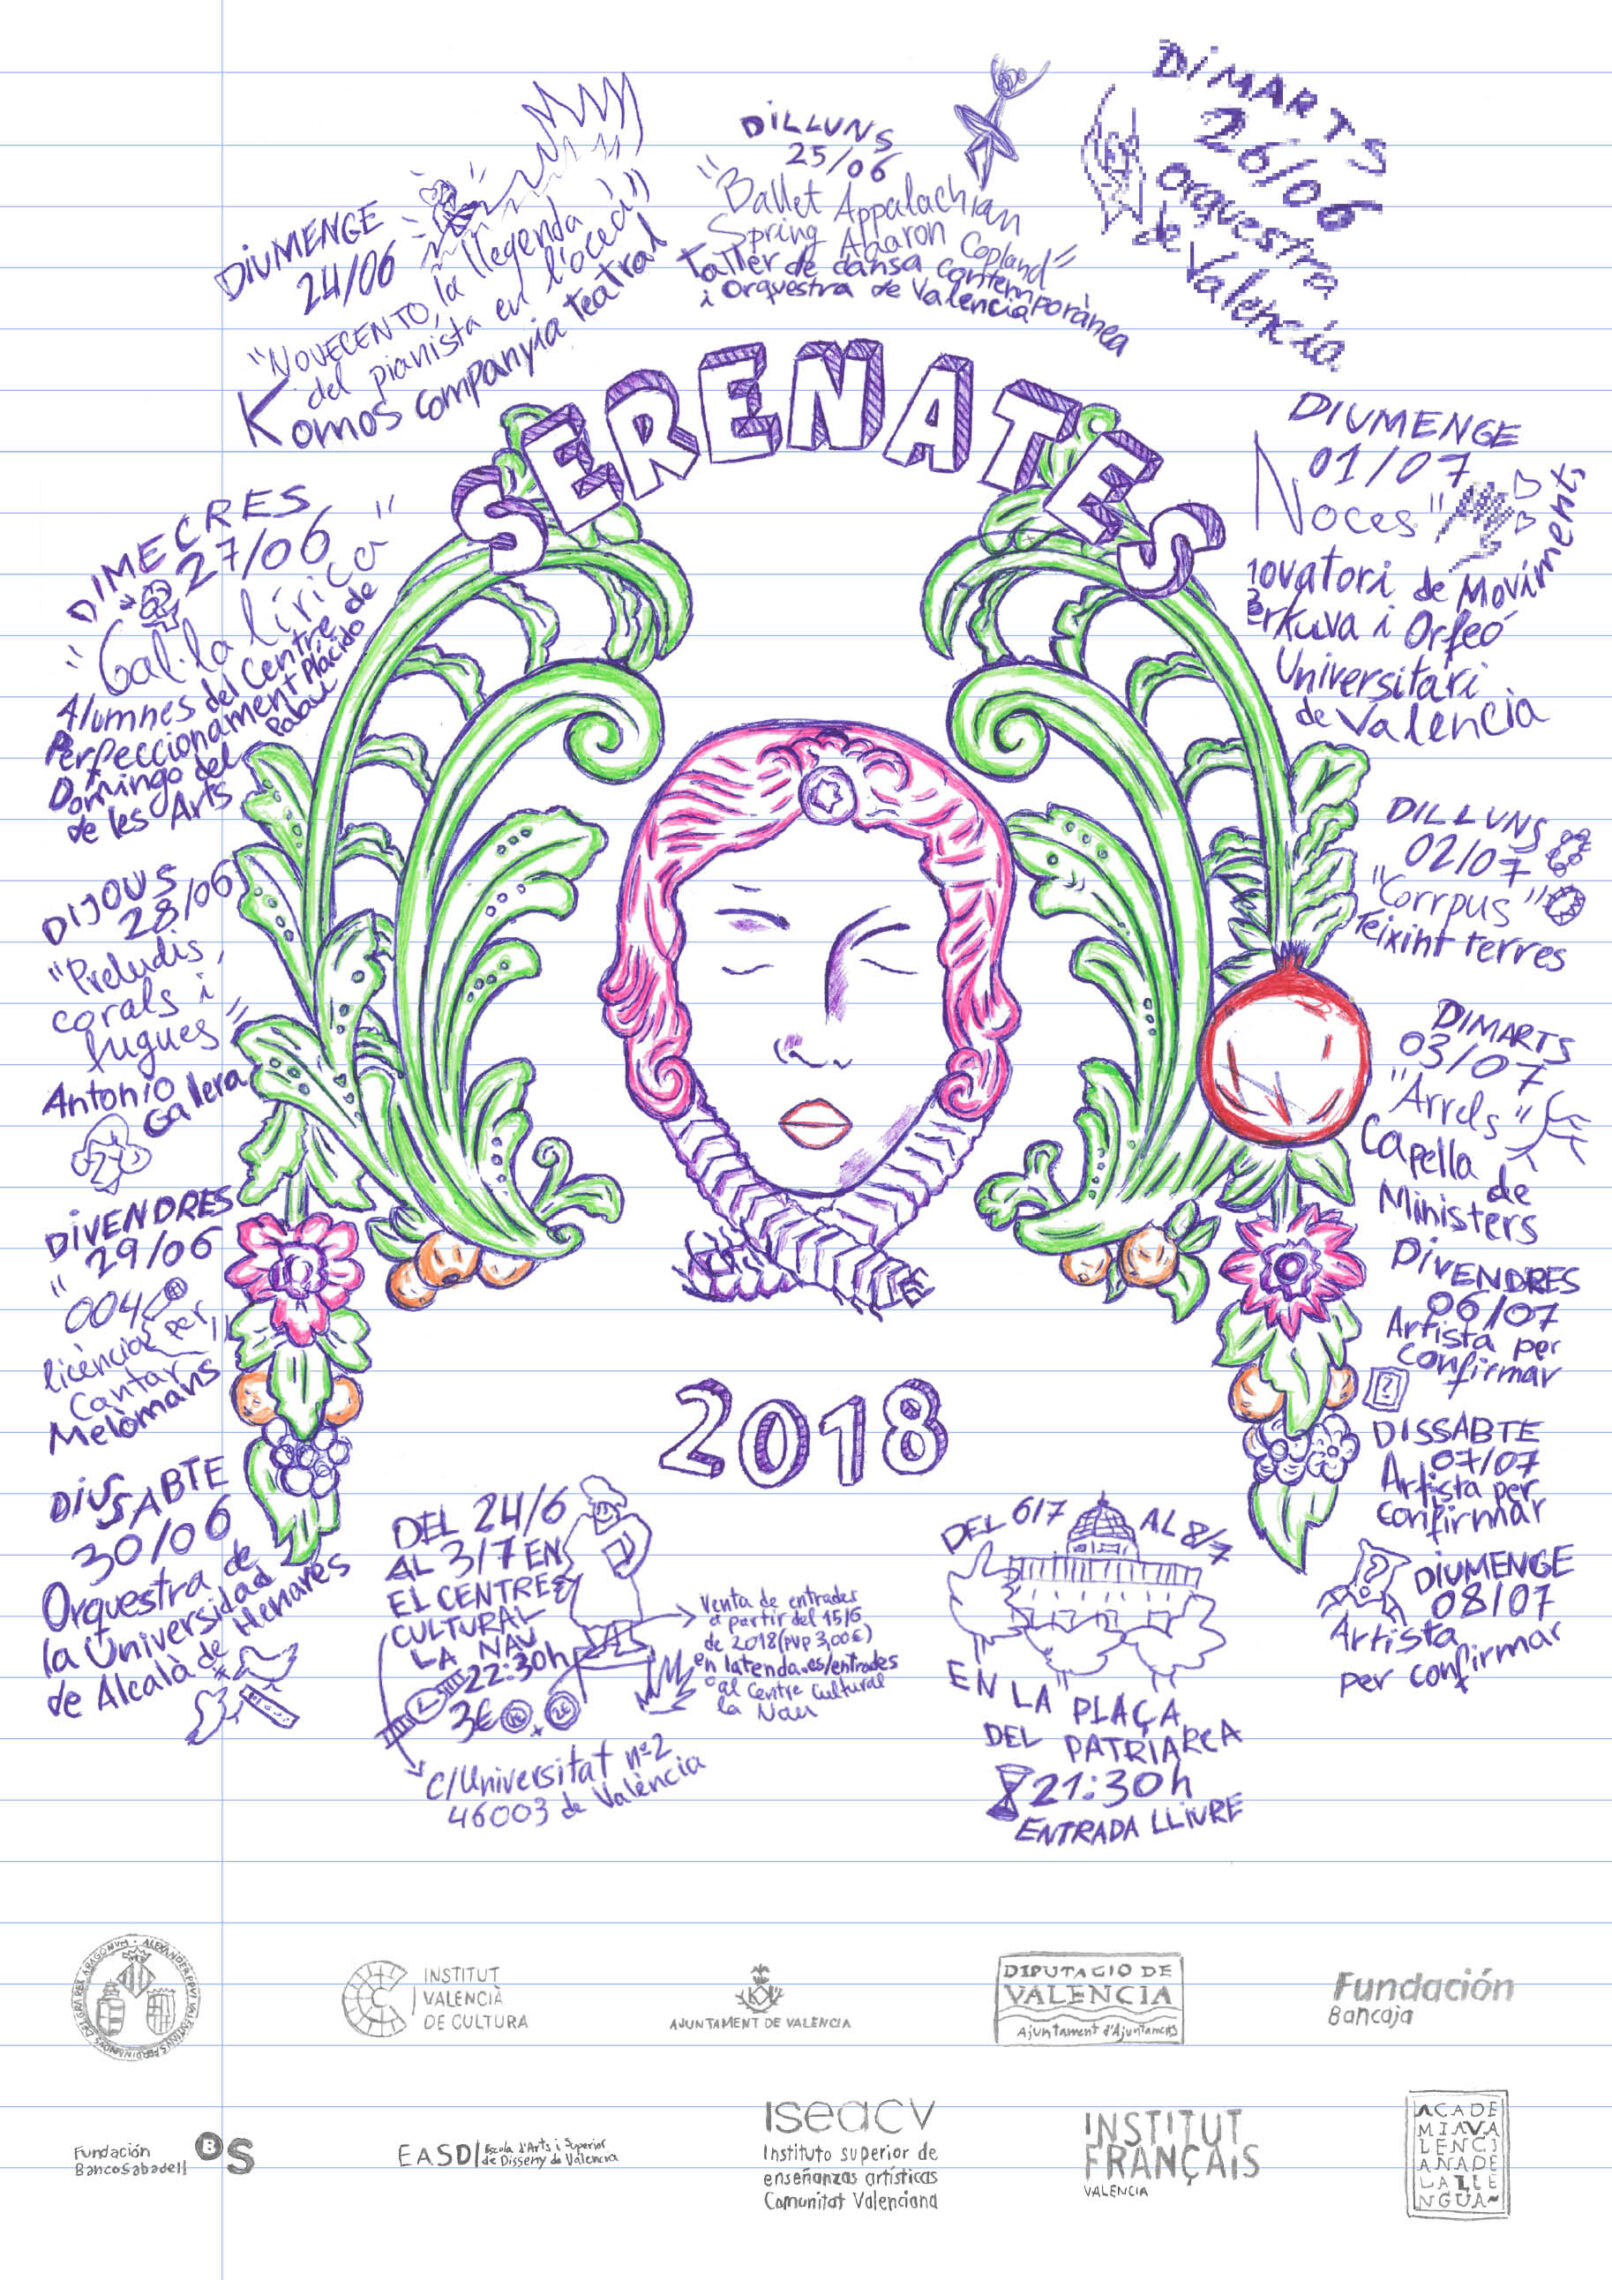 DIUMENGE
24/06
"NOVECENTO, la llegenda
del pianista en l'oceà"
Komos companyia teatral
DILLUNS
25/06
"Ballet Appalachian
Spring Aharon Copland"
Taller de dansa contemporànea
i Orquestra de València
DIMARTS
26/06
Orquestra
de València
SERENATES
DIMECRES
27/06
"Gal·la lírica"
Alumnes del Centre de
Perfeccionament Plácido
Domingo del Palau
de les Arts
DIJOUS
28/06
"Preludis,
corals i
fugues"
Antonio
Galera
DIVENDRES
29/06
"004
licència per
Cantar"
Melòmans
DISSABTE
30/06
Orquestra de
la Universidad
de Alcalà de Henares
DIUMENGE
01/07
Noces"
de Moviments
i Orfeó
Universitari
de València
DILLUNS
02/07
"Corrpus"
Teixint terres
DIMARTS
03/07
"Arrels"
Capella de
Ministers
DIVENDRES
06/07
Artista per
confirmar
DISSABTE
07/07
Artista per
confirmar
DIUMENGE
08/07
Artista
per confirmar
2018
DEL 24/6
AL 3/7 EN
EL CENTRE
CULTURAL
LA NAU
22:30h
3€
C/Universitat nº2
46003 de València
Venta de entrades
a partir del 15/6
de 2018 (pvp 3,00€)
en latenda.es/entrades
o al Centre Cultural
la Nau
DEL 6/7 AL 8/7
EN LA PLAÇA
DEL PATRIARCA
21:30h
ENTRADA LLIURE
INSTITUT
VALENCIÀ
DE CULTURA
AJUNTAMENT DE VALENCIA
DIPUTACIO DE
VALENCIA
Ajuntament d'Ajuntaments
Fundación
Bancaja
Fundación
BancoSabadell
BS
EASD
Escola d'Arts i Superior
de Disseny de Valencia
ISEACV
Instituto superior de
enseñanzas artísticas
Comunitat Valenciana
INSTITUT
FRANÇAIS
VALENCIA
ACADE
MIAVA
LENCI
ANADE
LALLE
NGUA